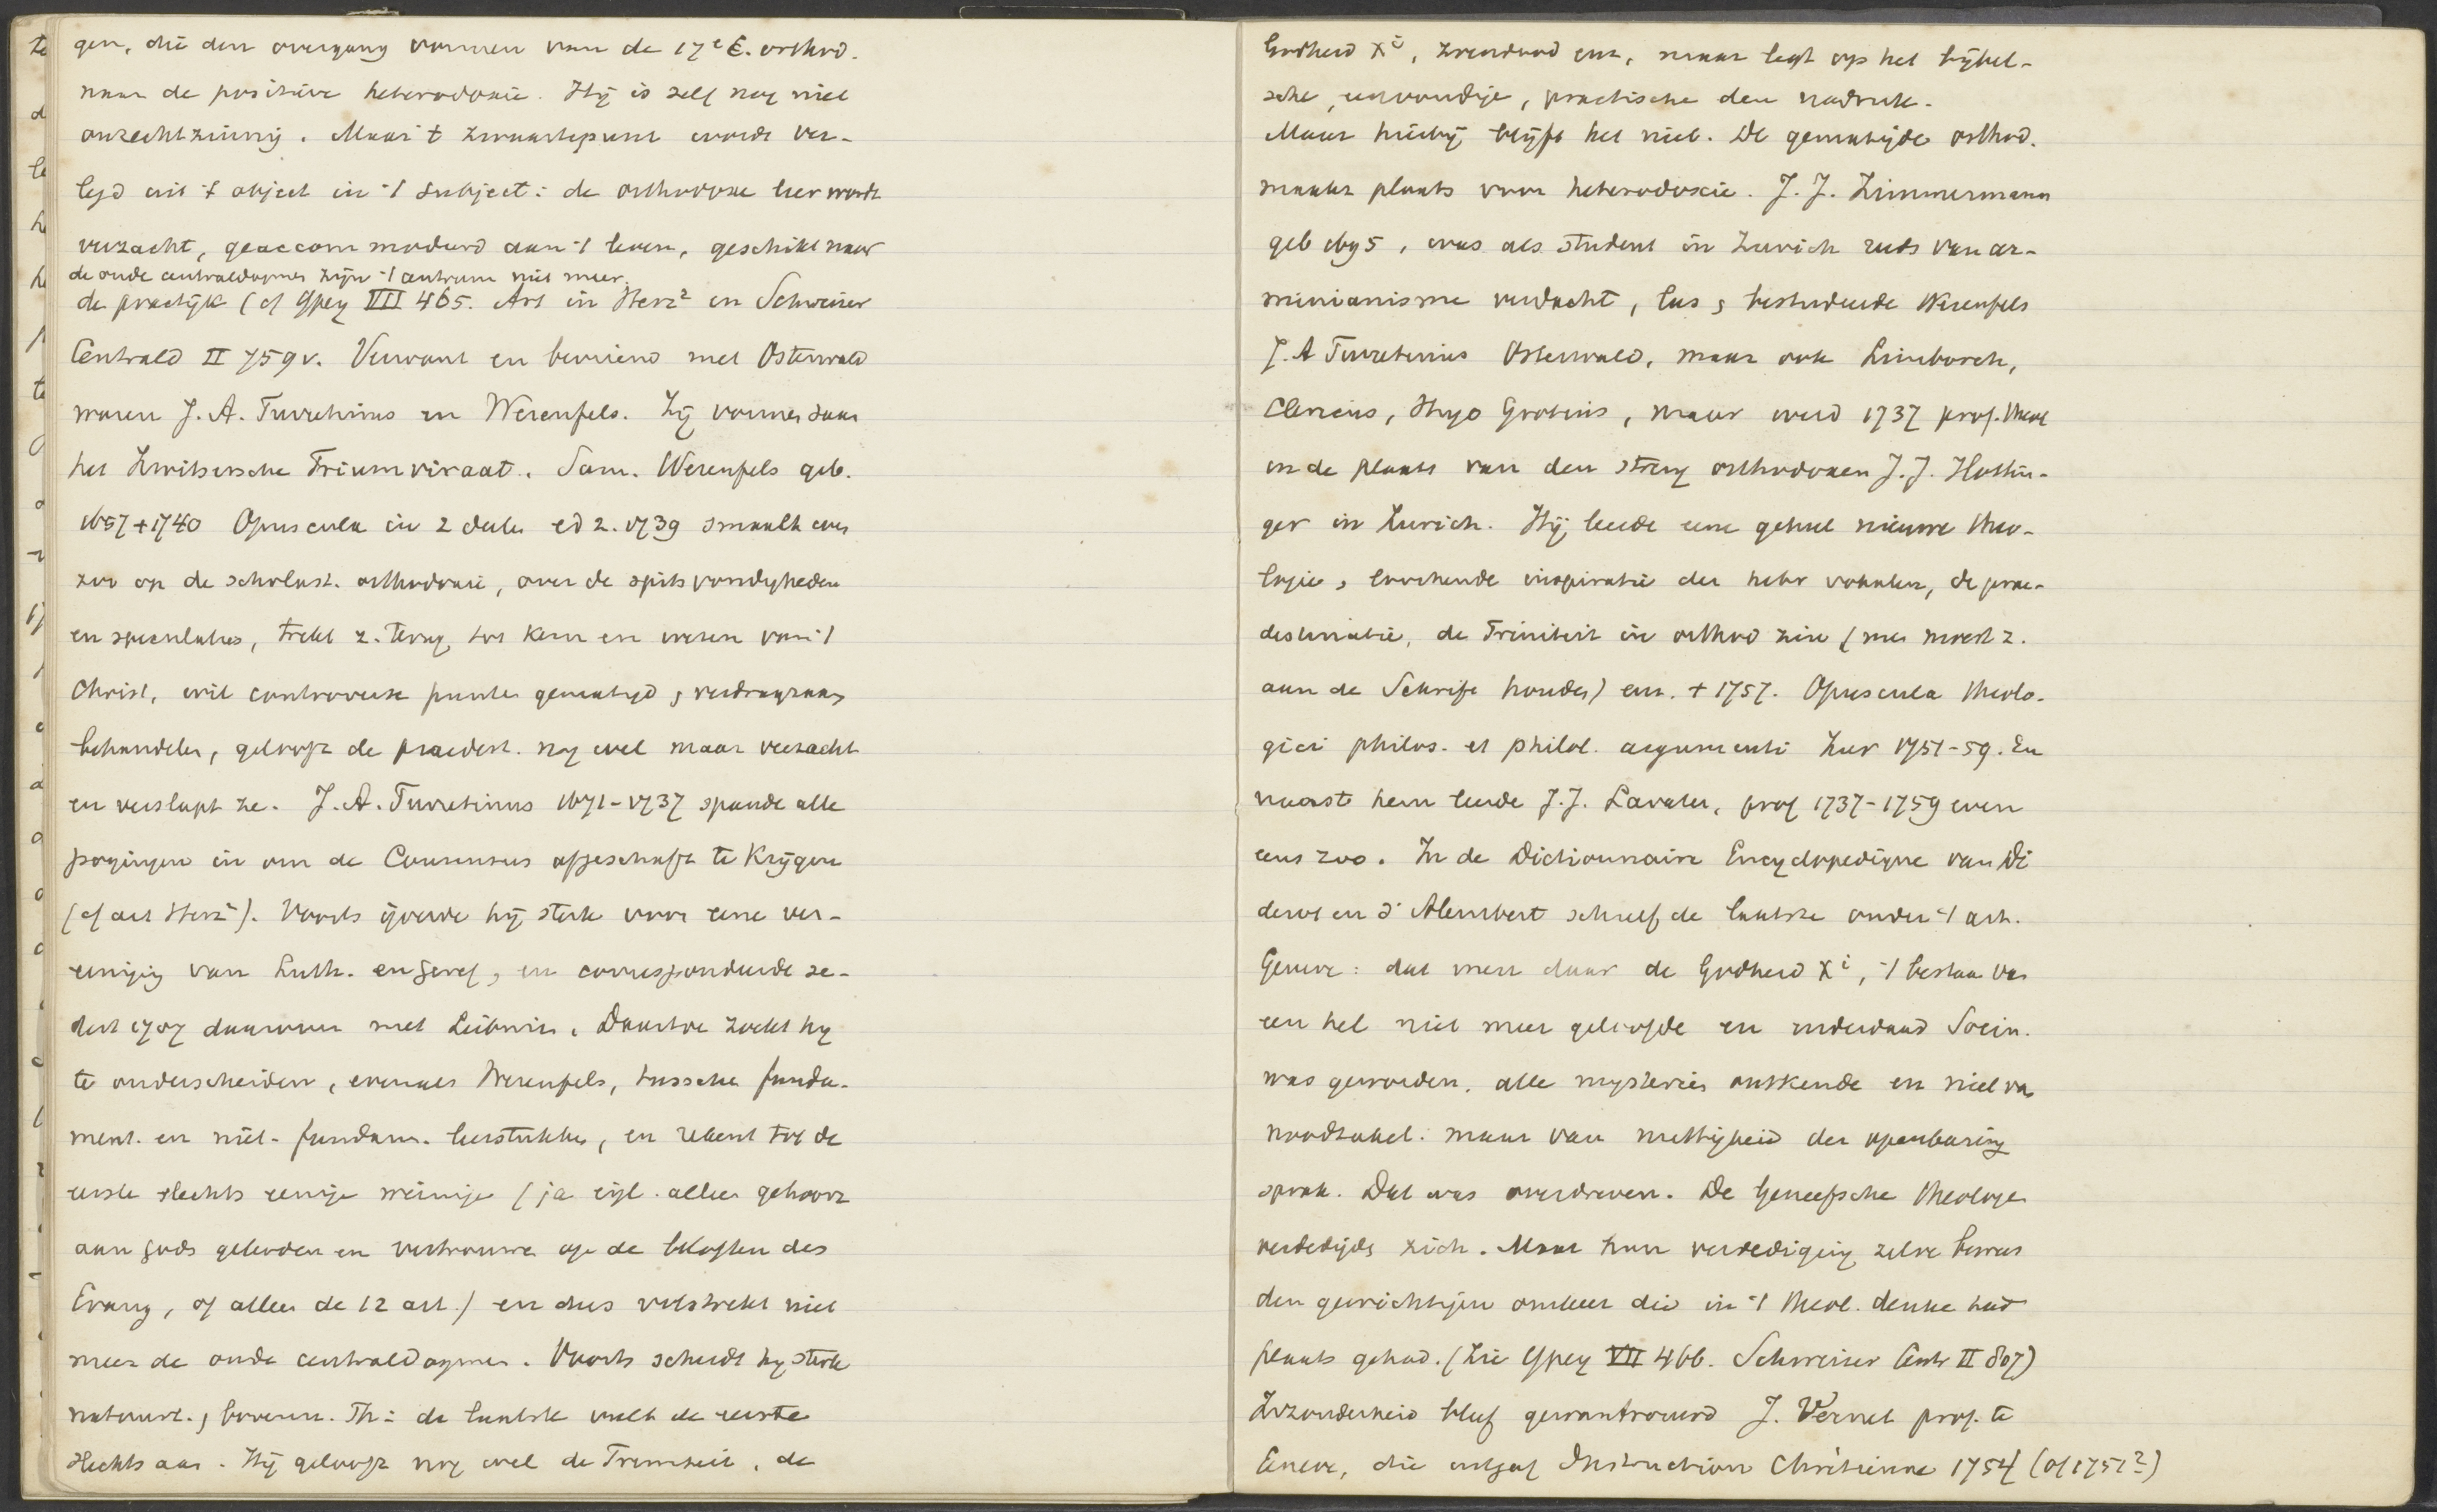 gen, die den overgang vormen van de 17e E. orthod.
naar de positieve heterodoxie. Hij is zelf nog niet
onrechtzinnig. Maar 't zwaartepunt wordt ver-
legd uit 't object in 't subject: de orthodoxe leer wordt
verzacht, geaccommodeerd aan 't leven, geschikt naar
de oude centraaldogmes zijn 't centrum niet meer.
de practijk (cf Ypey VII 465. Art in Herz² en Schweizer
Centrald II 759v. Verwant en bevriend met Osterwald
waren J. A. Turretinus en Werenfels. Zij vormen saam
het Zwitsersche Triumviraat. Sam. Werenfels geb.
1657 + 1740 Opuscula in 2 deelen ed 2. 1739 smaalt even
zoo op de scholast. orthodoxie, over de spitsvondigheden
en speculaties, trekt z. terug tot kern en wezen van 't
Christ, wil controverse punten gematigd en verdraagzaam
behandelen, gelooft de praedest. nog wel maar verzacht
en verslapt ze. J. A. Turretinus 1671-1737 spande alle
pogingen in om de Consensus afgeschaft te krijgen
(cf art Herz²). Voorts ijverde hij sterk voor eene ver-
eeniging van Luth. en Geref, en correspondeerde se-
dert 1707 daarover met Leibniz. Daartoe zocht hij
te onderscheiden, evenals Werenfels, tusschen funda-
ment. en niet-fundam. leerstukken, en rekent tot de
eerste slechts eenige weinige (ja eigl. alleen gehoorz
aan Gods geboden en vertrouwen op de beloften des
Evang, of alleen de 12 art.) en dus volstrekt niet
meer de oude centraldogmen. Voorts scheidt hij sterk
natuurl. en bovenn. Th: de laatste vult de eerste
slechts aan. Hij gelooft nog wel de Triniteit, de
Godheid Xi, zoendood enz, maar legt op het bijbel-
sche, eenvoudige, practische den nadruk.
Maar hierbij blijft het niet. De gematigde orthod.
maakt plaats voor heterodoxie. J. J. Zimmermann
geb 1695, was als student in Zurich reeds van ar-
minianisme verdacht, las en bestudeerde Werenfels
J. A Turretinus Osterwald, maar ook Limborch,
Clericus, Hugo Grotius, maar werd 1737 prof. theol
in de plaats van den streng orthodoxen J. J. Hottin-
ger in Zurich. Hij leerde eene geheel nieuwe theo-
logie, loochende inspiratie der hebr vokalen, de prae-
destinatie, de Triniteit in orthod zin (men moest z.
aan de Schrift houden) enz. + 1757. Opuscula theolo-
gici philos. et philol. argumenti Zur 1751-59. En
naast hem leerde J. J. Lavater, prof 1737-1759 even
eens zoo. In de Dictionnaire Encyclopedique van Di
derot en d'Alembert schreef de laatste onder 't art.
Geneve: dat men daar de Godheid Xi, 't bestaan van
een hel niet meer geloofde en inderdaad Socin.
was geworden, alle mysteries ontkende en niet van
noodzakel. maar van nuttigheid der openbaring
sprak. Dat was overdreven. De Geneefsche theologen
verdedigden zich. Maar hun verdediging zelve bewees
den gewichtigen omkeer die in 't theol. denken had
plaats gehad. (Zie Ypey VII 466. Schweizer Centr II 807)
Inzonderheid bleef gewantrouwd J. Vernet prof. te
Geneve, die uitgaf Instruction Chrétienne 1754 (of 1751?)